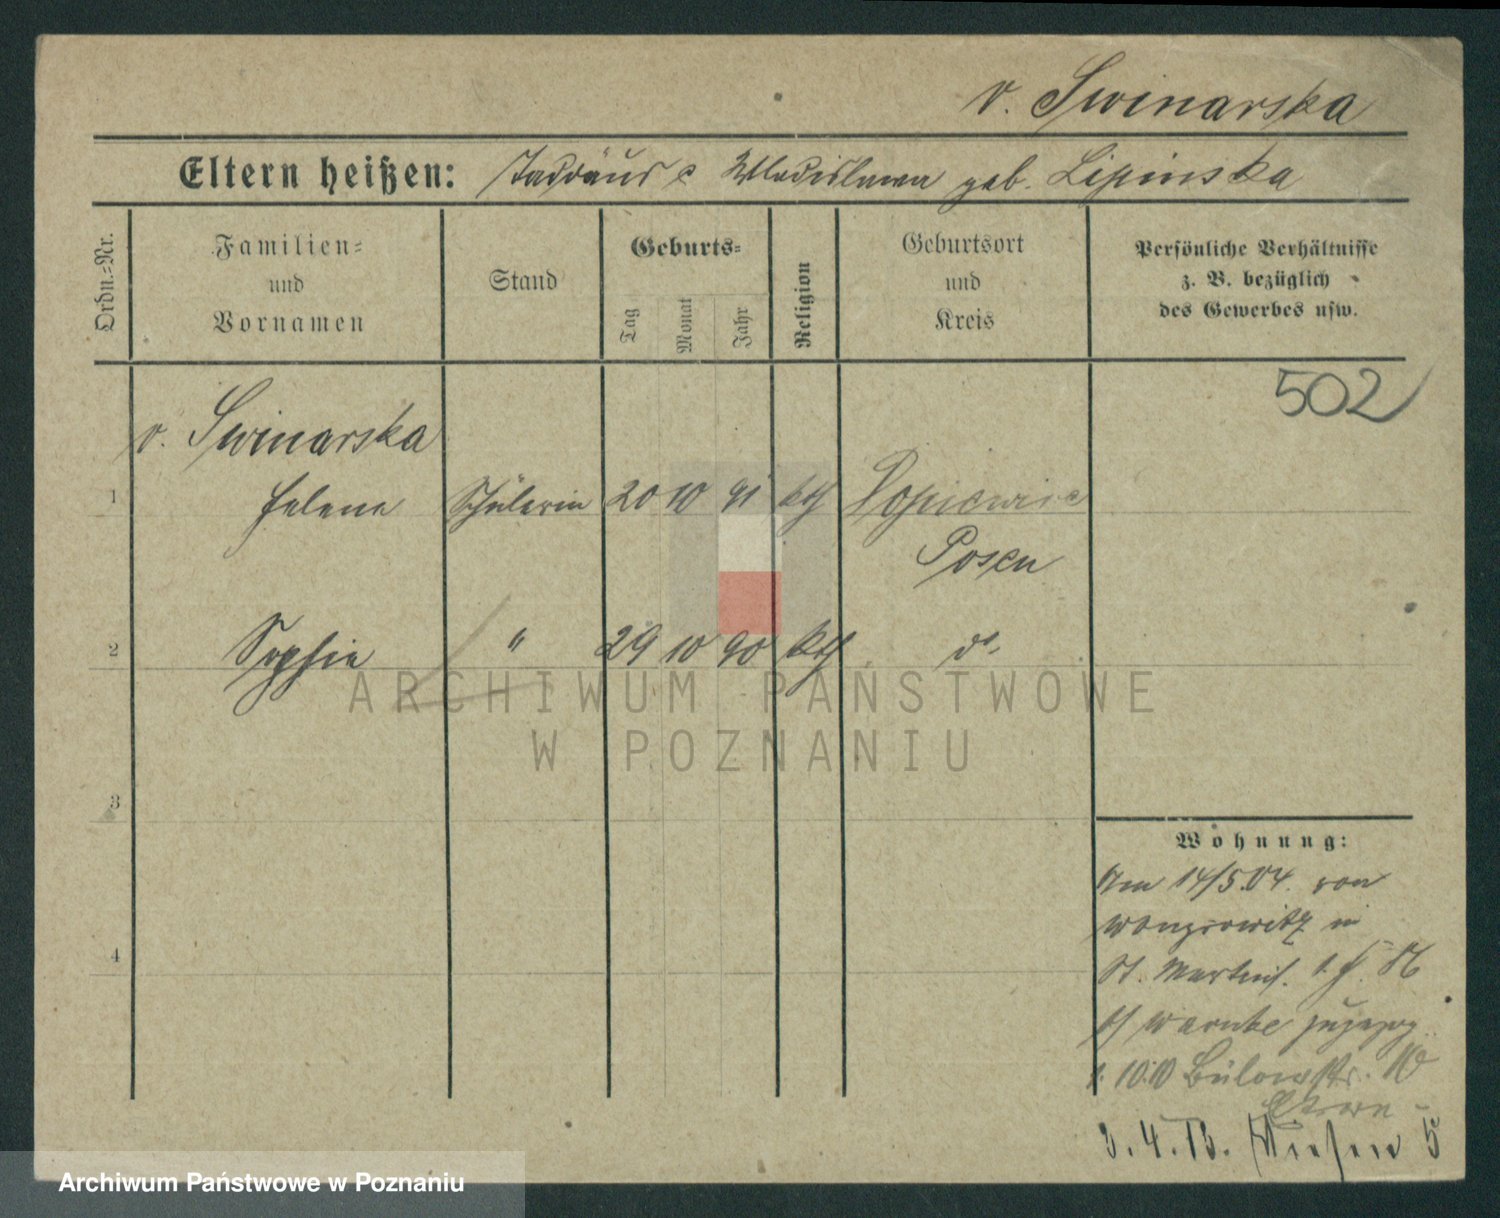 v. Swinarska
Eltern heißen: Taddäus & Wladislawa geb. Lipinska
Ordn.=Nr.
Familien=
und
Vornamen
Stand
Geburts=
Tag
Monat
Jahr
Religion
Geburtsort
und
Kreis
Persönliche Verhältnisse
z. B. bezüglich
des Gewerbes usw.
502
v. Swinarska
1 Helene Schülerin 20 10 91 kth
Posen
2 Sophie " 29 10 90 kth do.
ARCHIWUM PAŃSTWOWE
W POZNANIU
3
4
Wohnung:
Am 14/5.04. von
Wongrowitz in
St. Martinstr.
b/ Warnke zugezog.
1. 10.10 Bülowstr. 10
Eltern
3.4.13.
Archiwum Państwowe w Poznaniu